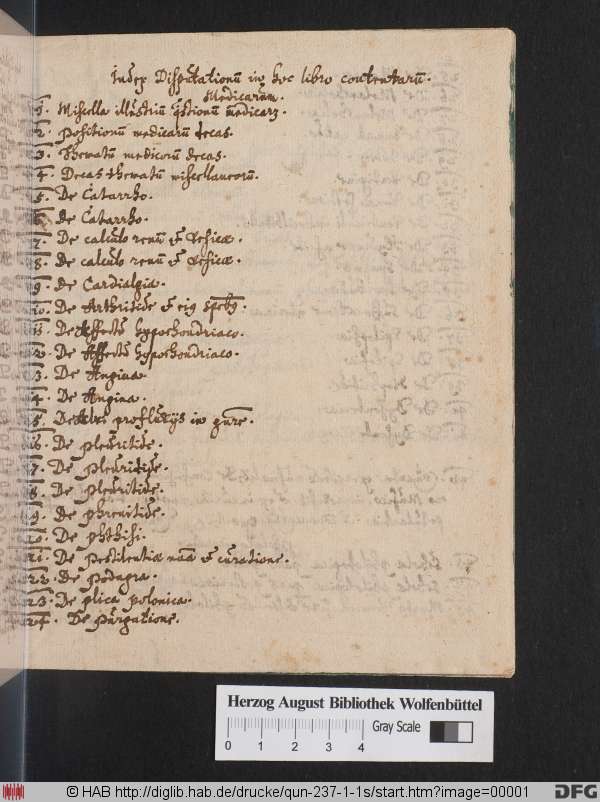 Index Disputationū in hoc libro contentarū.
Medicarum.
1. Miscella illustriū qstionū medicarz.
2. Positionū medicarū decas.
3. Thematū medicorū decas.
4. Decas thematū miscellaneorū.
5. De Catarrho.
6. De Catarrho.
7. De calculo renū & vesicæ.
8. De calculo renū & vesicæ.
9. De Cardialgia.
10. De Arthritide & eiq
11. De Affectu hypochondriaco.
12. De Affectu hypochondriaco.
13. De Angina.
14. De Angina.
15. De Alvi profluvijs in gńre.
16. De pleuritide.
17. De pleuritide.
18. De pleuritide.
19. De phrenitide.
20. De phthisi.
21. De Pestilentiæ & curatione.
22. De Podagra.
23. De plica polonica.
24. De Purgatione.
Herzog August Bibliothek Wolfenbüttel
Gray Scale
0 1 2 3 4
© HAB http://diglib.hab.de/drucke/qun-237-1-1s/start.htm?image=00001
DFG